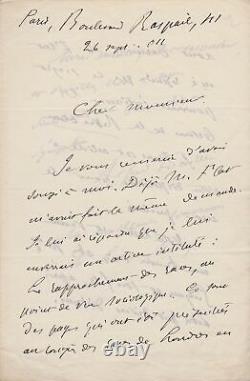 Paris, Boulevard Raspail, 
26 sept.
Cher Monsieur.
Je vous remercie d'avoir
songé à moi. Déjà M.
m'avait fait la même demande.
Je lui ai répondu que je lui
enverrais un article intitulé :
Le rapprochement des races, au
point de vue sociologique. Ce sont
des pages qui ont été présentées
au congrès des races de Londres en